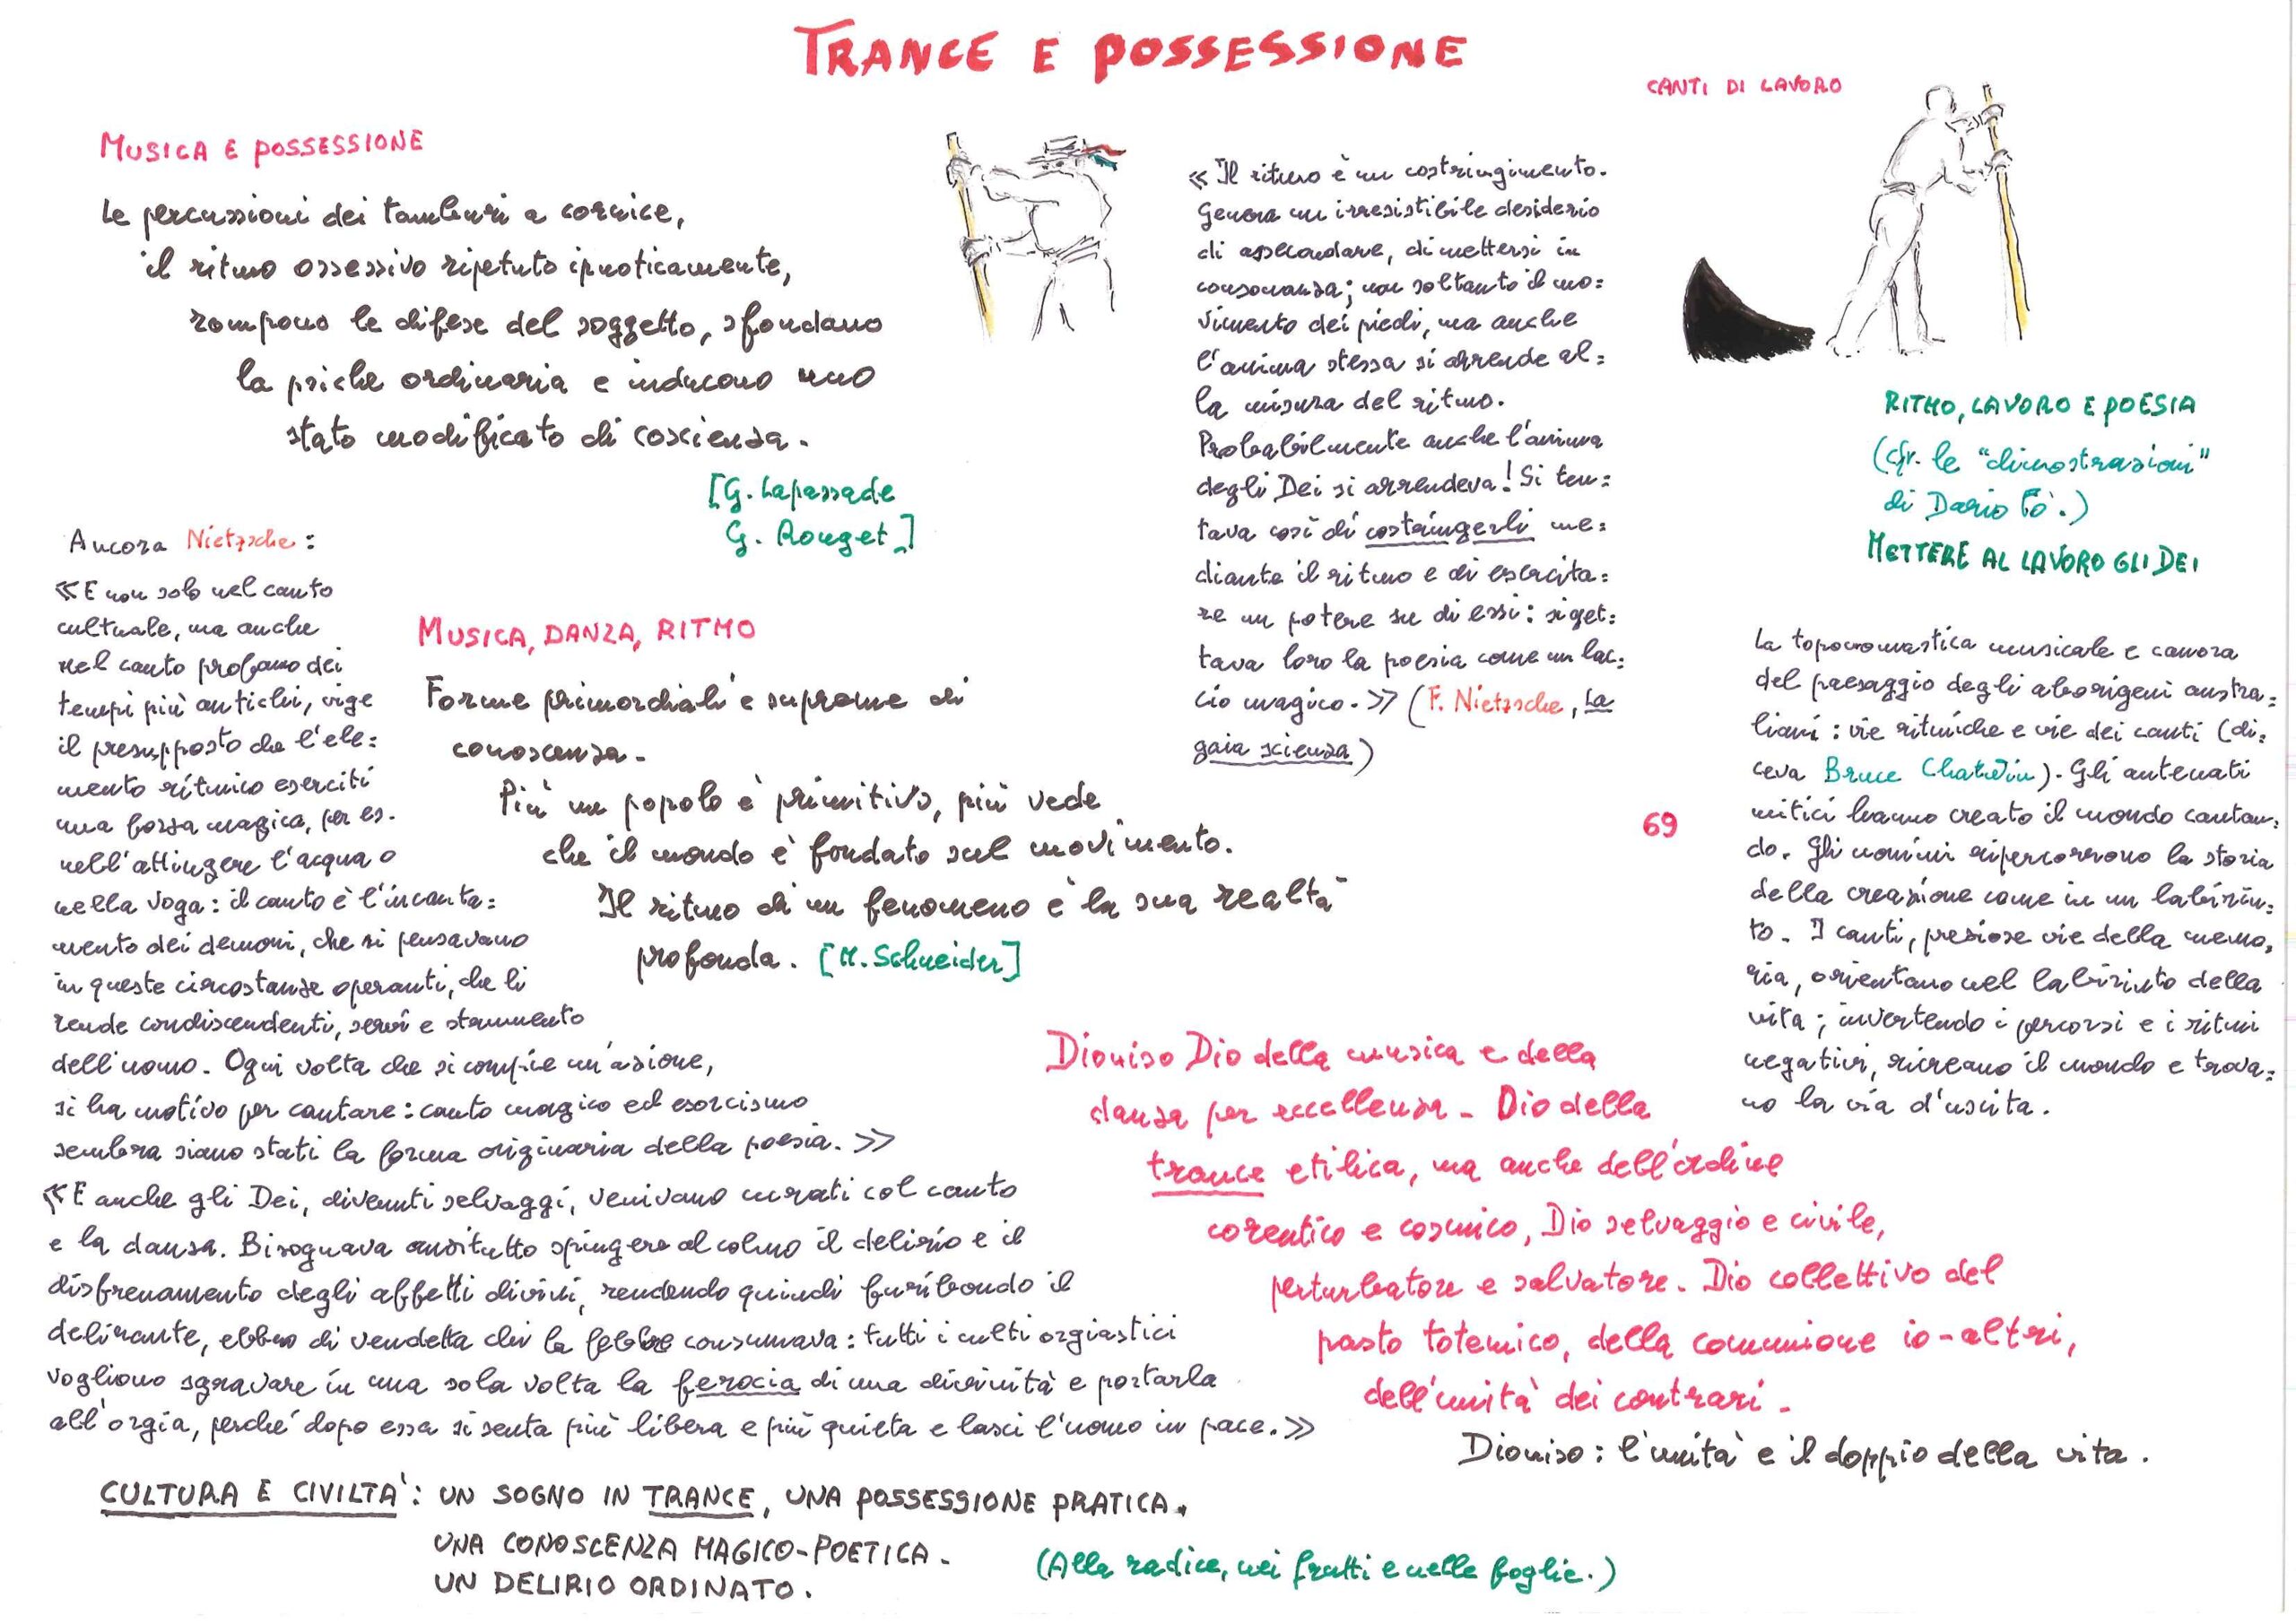 TRANCE E POSSESSIONE
MUSICA E POSSESSIONE
Le percussioni dei tamburi a cornice,
il ritmo ossessivo ripetuto ipnoticamente,
rompono le difese del soggetto, sfondano
la psiche ordinaria e inducono uno
stato modificato di coscienza.
[G. Lapassade
G. Rouget]
Ancora Nietzsche:
«E non solo nel canto
cultuale, ma anche
nel canto profano dei
tempi più antichi, vige
il presupposto che l'ele=
mento ritmico eserciti
una forza magica, per es.
nell'attingere l'acqua o
nella voga: il canto è l'incanta=
mento dei demoni, che si pensavano
in queste circostanze operanti, che li
rende condiscendenti, servi e strumento
dell'uomo. Ogni volta che si compie un'azione,
si ha motivo per cantare: canto magico ed esorcismo
sembra siano stati la forma originaria della poesia.»
«E anche gli Dei, divenuti selvaggi, venivano curati col canto
e la danza. Bisognava anzitutto spingere al colmo il delirio e il
disfrenamento degli affetti divini, rendendo quindi furibondo il
delirante, ebbro di vendetta chi la febbre consumava: tutti i culti orgiastici
vogliono sgravare in una sola volta la ferocia di una divinità e portarla
all'orgia, perché dopo essa si senta più libera e più quieta e lasci l'uomo in pace.»
MUSICA, DANZA, RITMO
Forme primordiali e supreme di
conoscenza.
Più un popolo è primitivo, più vede
che il mondo è fondato sul movimento.
Il ritmo di un fenomeno è la sua realtà
profonda. [M. Schneider]
«Il ritmo è un costringimento.
Genera un irresistibile desiderio
di assecondare, di mettersi in
consonanza; non soltanto il mo=
vimento dei piedi, ma anche
l'anima stessa si arrende al=
la misura del ritmo.
Probabilmente anche l'anima
degli Dei si arrendeva! Si ten=
tava così di costringerli me=
diante il ritmo e di esercita=
re un potere su di essi: si get=
tava loro la poesia come un lac=
cio magico.» (F. Nietzsche, La
gaia scienza)
CANTI DI LAVORO
RITMO, LAVORO E POESIA
(cfr. le "dimostrazioni"
di Dario Fò.)
METTERE AL LAVORO GLI DEI
La toponomastica musicale e canora
del paesaggio degli aborigeni austra=
liani: vie ritmiche e vie dei canti (di=
ceva Bruce Chatwin). Gli antenati
mitici hanno creato il mondo cantan=
do. Gli uomini ripercorrono la storia
della creazione come in un labirin=
to. I canti, preziose vie della memo=
ria, orientano nel labirinto della
vita; invertendo i percorsi e i ritmi
negativi, ricreano il mondo e trova=
no la via d'uscita.
69
Dioniso Dio della musica e della
danza per eccellenza - Dio della
trance etilica, ma anche dell'ordine
coreutico e cosmico, Dio selvaggio e civile,
perturbatore e salvatore. Dio collettivo del
pasto totemico, della comunione io-altri,
dell'unità dei contrari.
Dioniso: l'unità e il doppio della vita.
CULTURA E CIVILTA': UN SOGNO IN TRANCE, UNA POSSESSIONE PRATICA.
UNA CONOSCENZA MAGICO-POETICA.
UN DELIRIO ORDINATO.
(Alla radice, nei frutti e nelle foglie.)